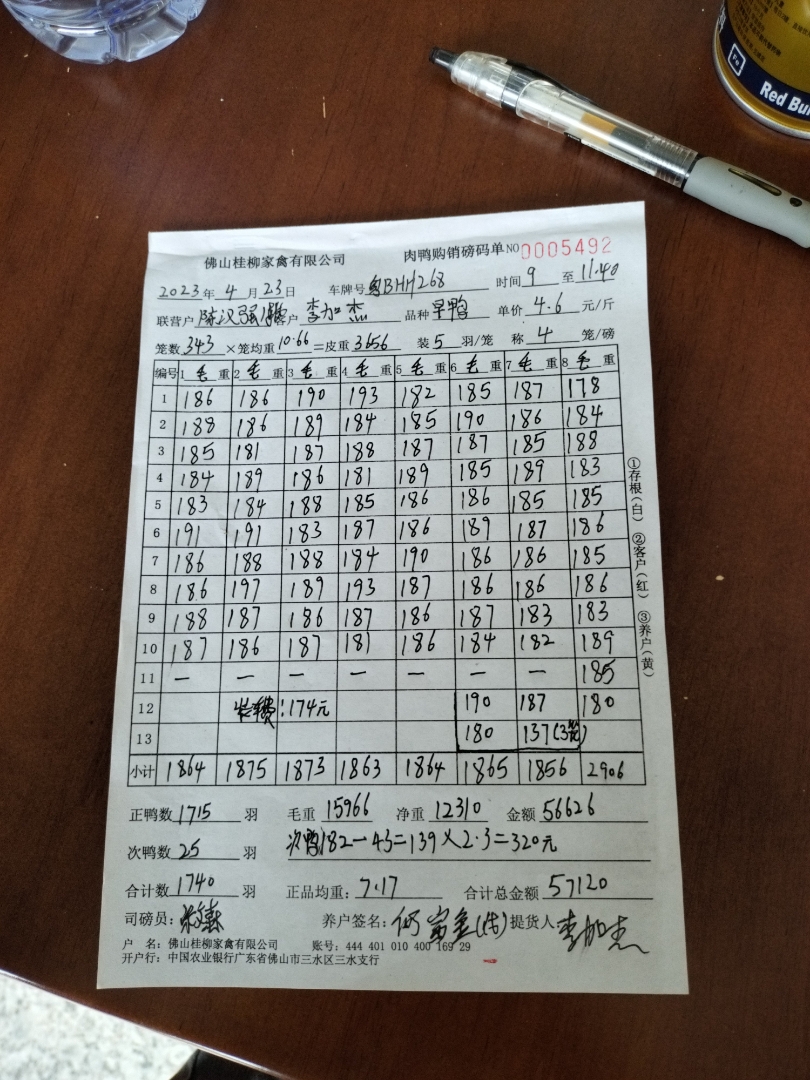 Red Bul
佛山桂柳家禽有限公司 肉鸭购销磅码单 NO 0005492
2023年 4月 23日 车牌号 粤BHH268 时间 9 至 11.40
联营户 陈汉强 客户 李加杰 品种 旱鸭 单价 4.6 元/斤
笼数 343 ×笼均重 10.66 =皮重 3656 装 5 羽/笼 称 4 笼/磅
编号 1 毛 重 2 毛 重 3 毛 重 4 毛 重 5 毛 重 6 毛 重 7 毛 重 8 毛 重
1 186 186 190 193 182 185 187 178
2 188 186 189 184 185 190 186 184
3 185 181 187 188 187 187 185 188
4 184 189 186 181 189 185 189 183
5 183 184 188 185 186 186 185 185
6 191 191 183 187 186 189 187 186
7 186 188 188 184 190 186 186 185
8 186 197 189 193 187 186 186 186
9 188 187 186 187 186 187 183 183
10 187 186 187 181 186 184 182 189
11 — — — — — — — 185
12 装车费:174元 190 187 180
13 180 137(3笼)
小计 1864 1875 1873 1863 1864 1865 1856 2906
①存根(白) ②客户(红) ③养户(黄)
正鸭数 1715 羽 毛重 15966 净重 12310 金额 56626
次鸭数 25 羽 次鸭182-43=139×2.3=320元
合计数 1740 羽 正品均重: 7.17 合计总金额 57120
司磅员: 养户签名: 提货人: 李加杰
户 名: 佛山桂柳家禽有限公司 账号: 444 401 010 400 169 29
开户行: 中国农业银行广东省佛山市三水区三水支行